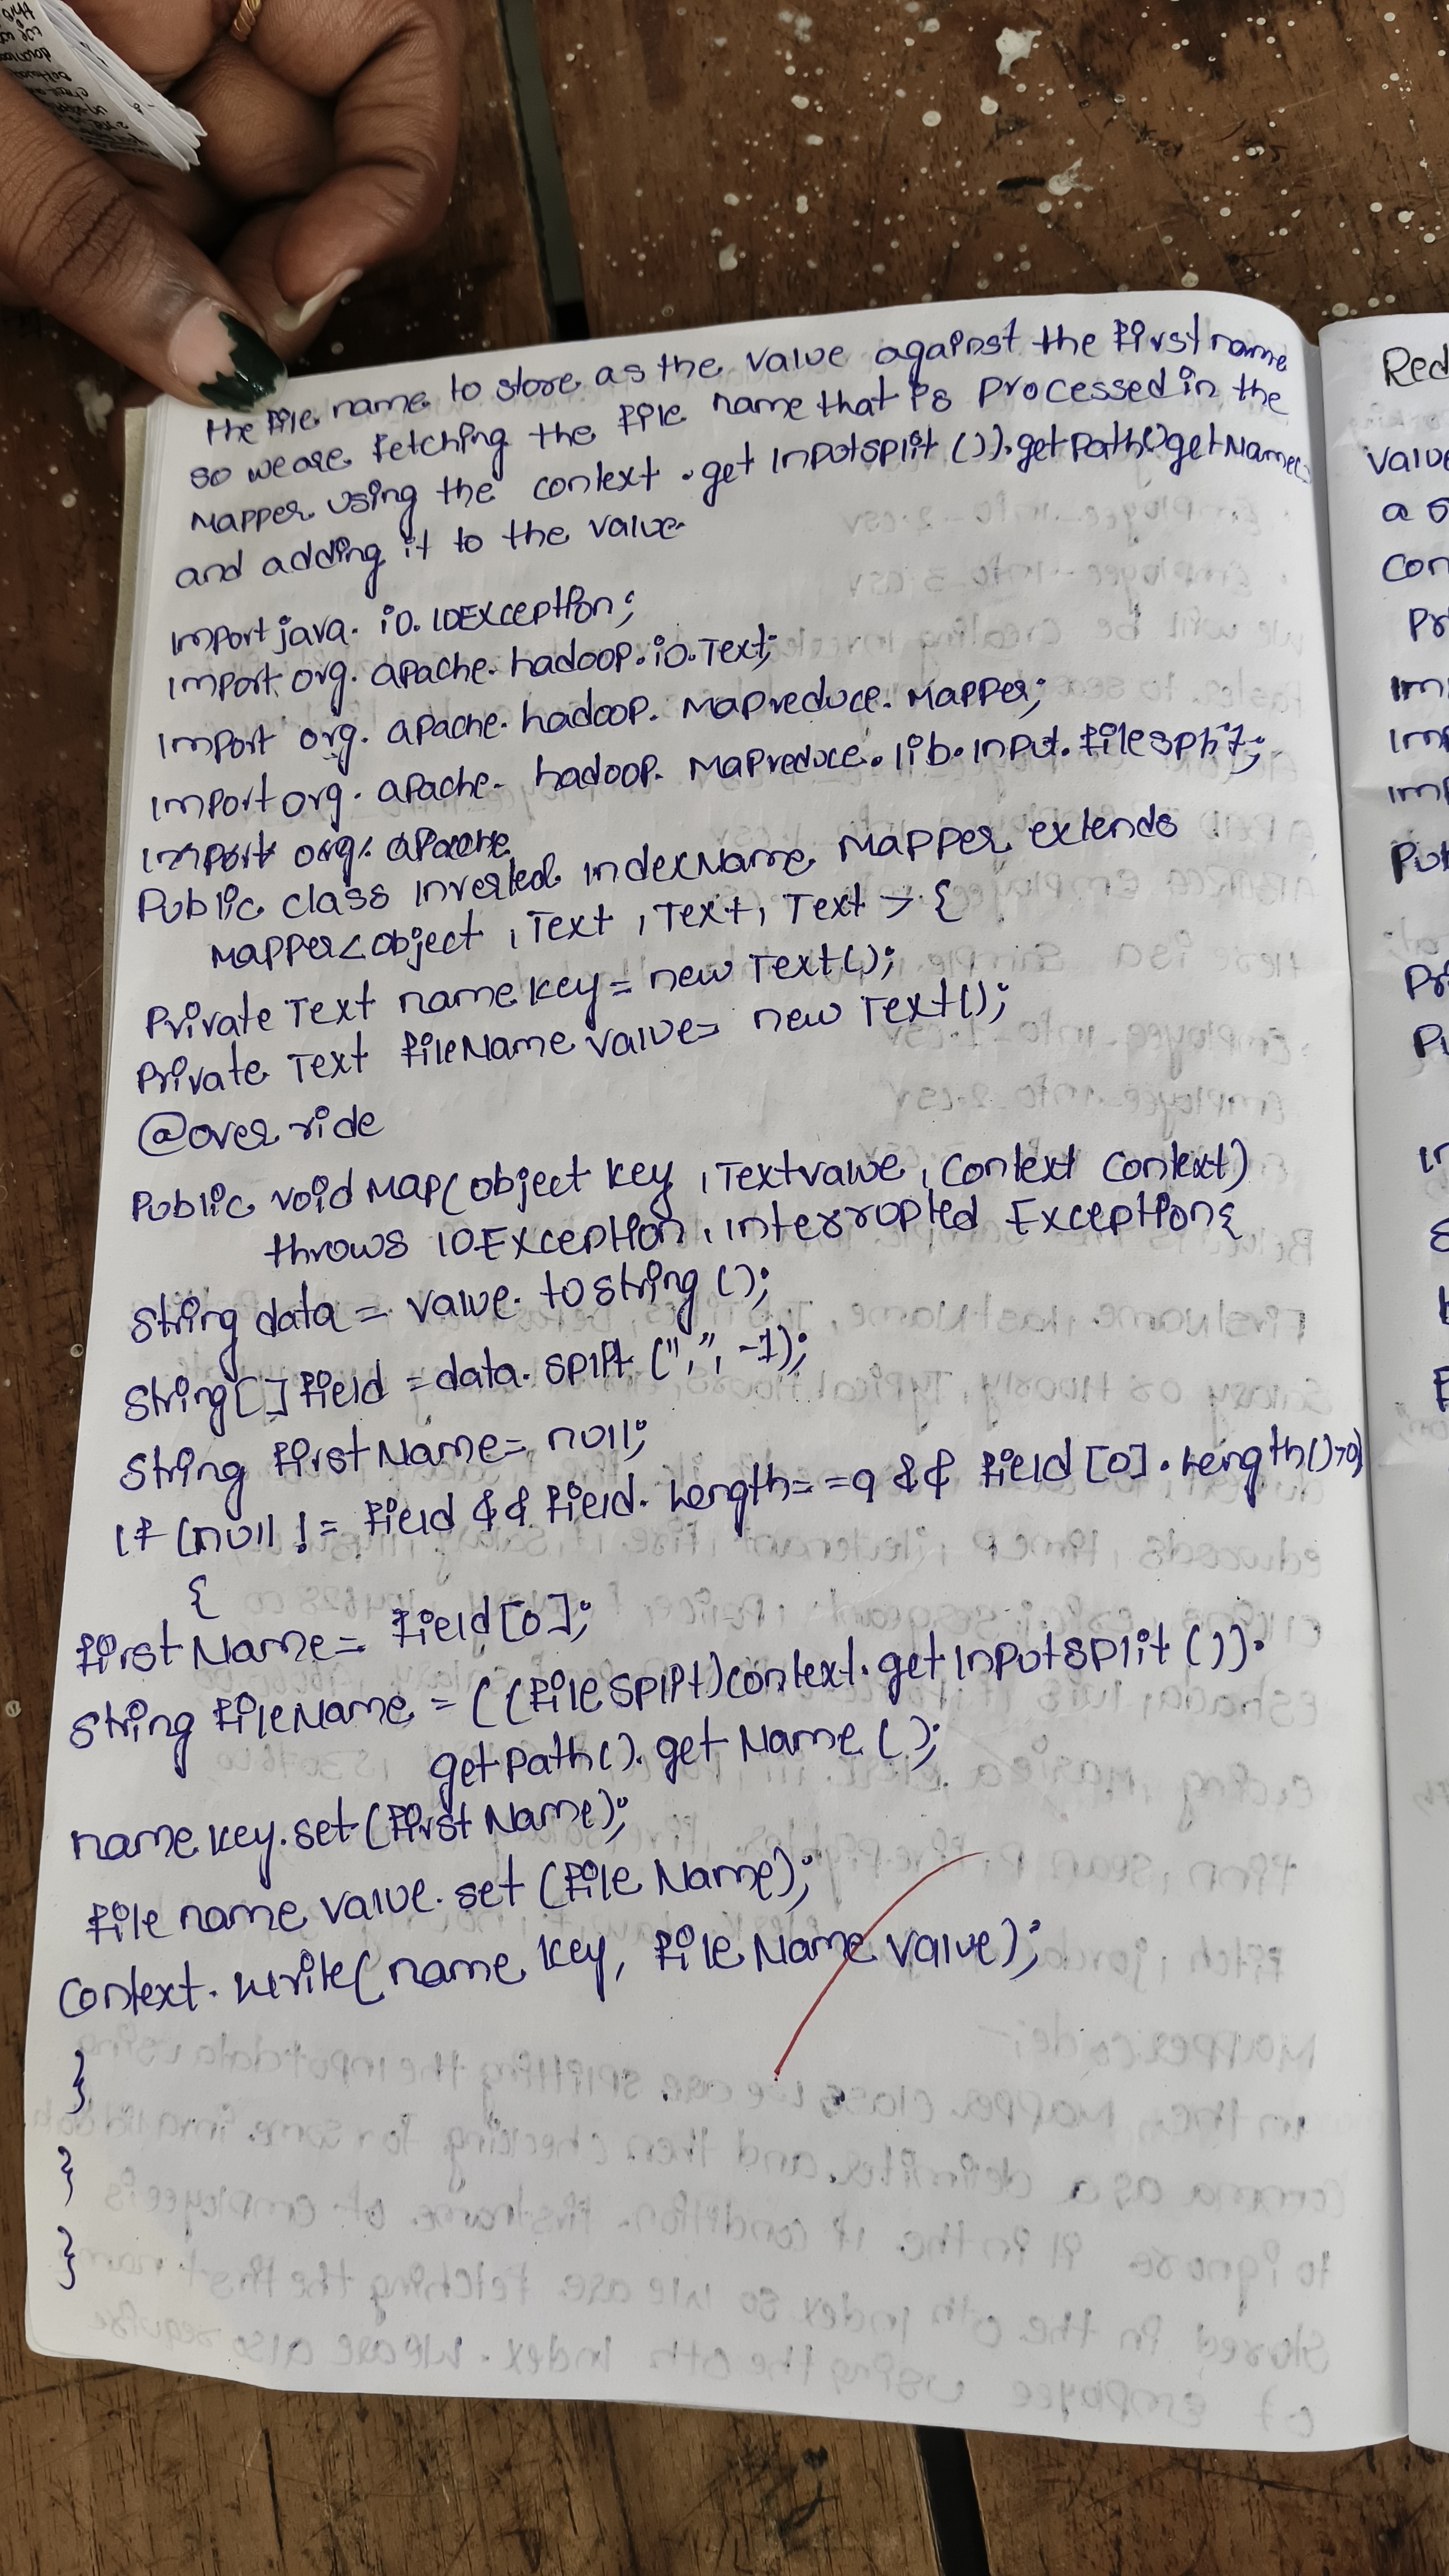 the file name to store as the value against the first name
so we are fetching the file name that is processed in the
Mapper using the context .get Inputsplit ()).getPath().getName()
and adding it to the value.
Import java. io. IOException;
Import org. apache. hadoop. io. Text;
Import org. apache. hadoop. Mapreduce. Mapper;
Import org. apache. hadoop. Mapreduce. lib. Input. filesplit;
Import org. apache
Public class Inverted IndexName Mapper extends
Mapper<object , Text , Text, Text > {
Private Text name key = new Text();
Private Text fileName value= new Text();
@over ride
Public void Map(object key , Text value , Context Context)
throws IOException, Interrupted Exception{
String data = value. to string ();
String[] field = data. split (",", -1);
String firstName= null;
If (null != field && field. Length= =9 && field [0]. Length()>0)
{
first Name= field[0];
String fileName = ((file split)context.get Inputsplit ()).
getpath(). get Name ();
name key.set (first Name);
file name value. set (file Name);
Context. write( name key, file Name value);
}
}
}
Red
Value
a s
Con
Pr
Im
Imp
Imp
Pub
Pr
Pu
In